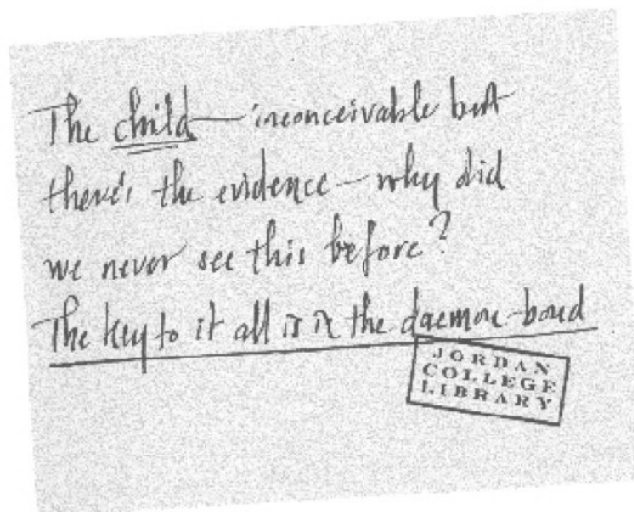 The child — inconceivable but
there's the evidence — why did
we never see this before?
The key to it all is in the daemon-bond
JORDAN
COLLEGE
LIBRARY